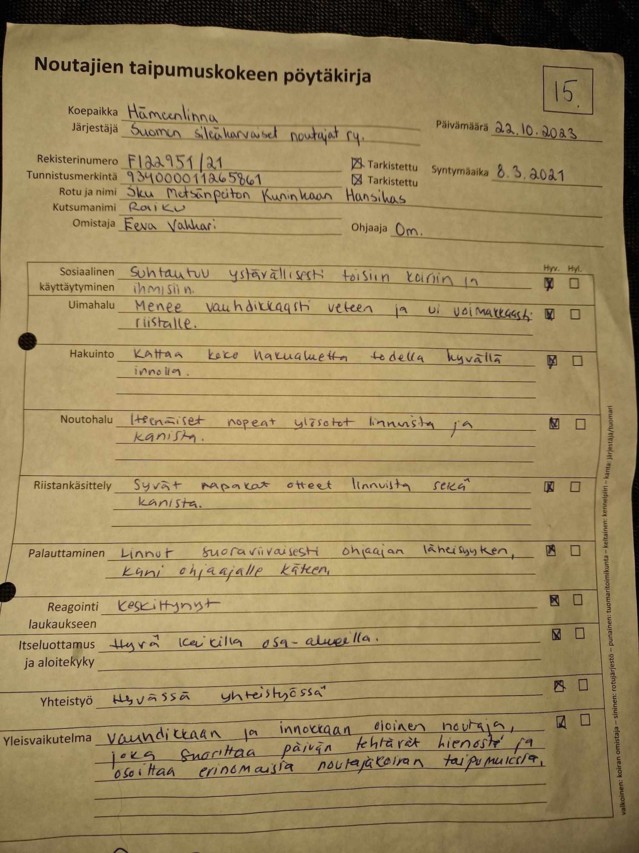 Noutajien taipumuskokeen pöytäkirja
15.
Koepaikka Hämeenlinna
Järjestäjä Suomen sileäkarvaiset noutajat ry.
Päivämäärä 22.10.2023
Rekisterinumero FI22951/21 ☒ Tarkistettu
Tunnistusmerkintä 934000011265861 ☒ Tarkistettu
Syntymäaika 8.3.2021
Rotu ja nimi sku Metsänpeiton Kuninkaan Hansikas
Kutsumanimi Raiku
Omistaja Eeva Vahhari
Ohjaaja Om.
Hyv. Hyl.
Sosiaalinen käyttäytyminen Suhtautuu ystävällisesti toisiin koiriin ja
ihmisiin.
Uimahalu Menee vauhdikkaasti veteen ja ui voimakkaasti
riistalle.
Hakuinto Kattaa koko hakualuetta todella hyvällä
innolla.
Noutohalu Itsenäiset nopeat ylösotot linnuista ja
kanista.
Riistankäsittely Syvät napakat otteet linnuista sekä
kanista.
Palauttaminen Linnut suoraviivaisesti ohjaajan läheisyyteen,
kani ohjaajalle käteen.
Reagointi laukaukseen Keskittynyt
Itseluottamus ja aloitekyky Hyvä kaikilla osa-alueilla.
Yhteistyö Hyvässä yhteistyössä
Yleisvaikutelma Vauhdikkaan ja innokkaan oloinen noutaja,
joka suorittaa päivän tehtävät hienosti ja
osoittaa erinomaisia noutajakoiran taipumuksia.
valkoinen: koiran omistaja – sininen: rotujärjestö – punainen: tuomaritoimikunta – keltainen: kennelpiiri – kanta: järjestäjä/tuomari